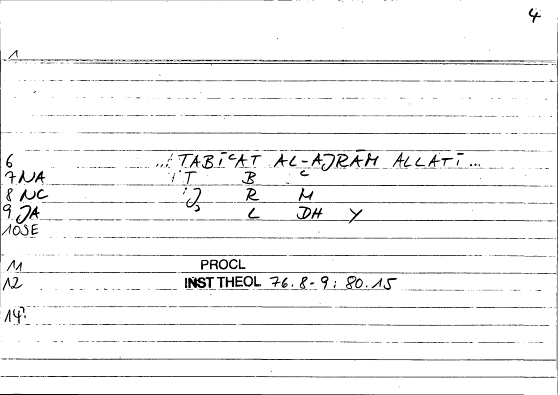 4
1
6 ...ṬABĪʿAT AL-AJRĀM ALLATĪ...
7 NA Ṭ B ʿ
8 NC J R M
9 JA L DH Y
10 SE
11 PROCL
12 INST THEOL 76.8-9; 80.15
14